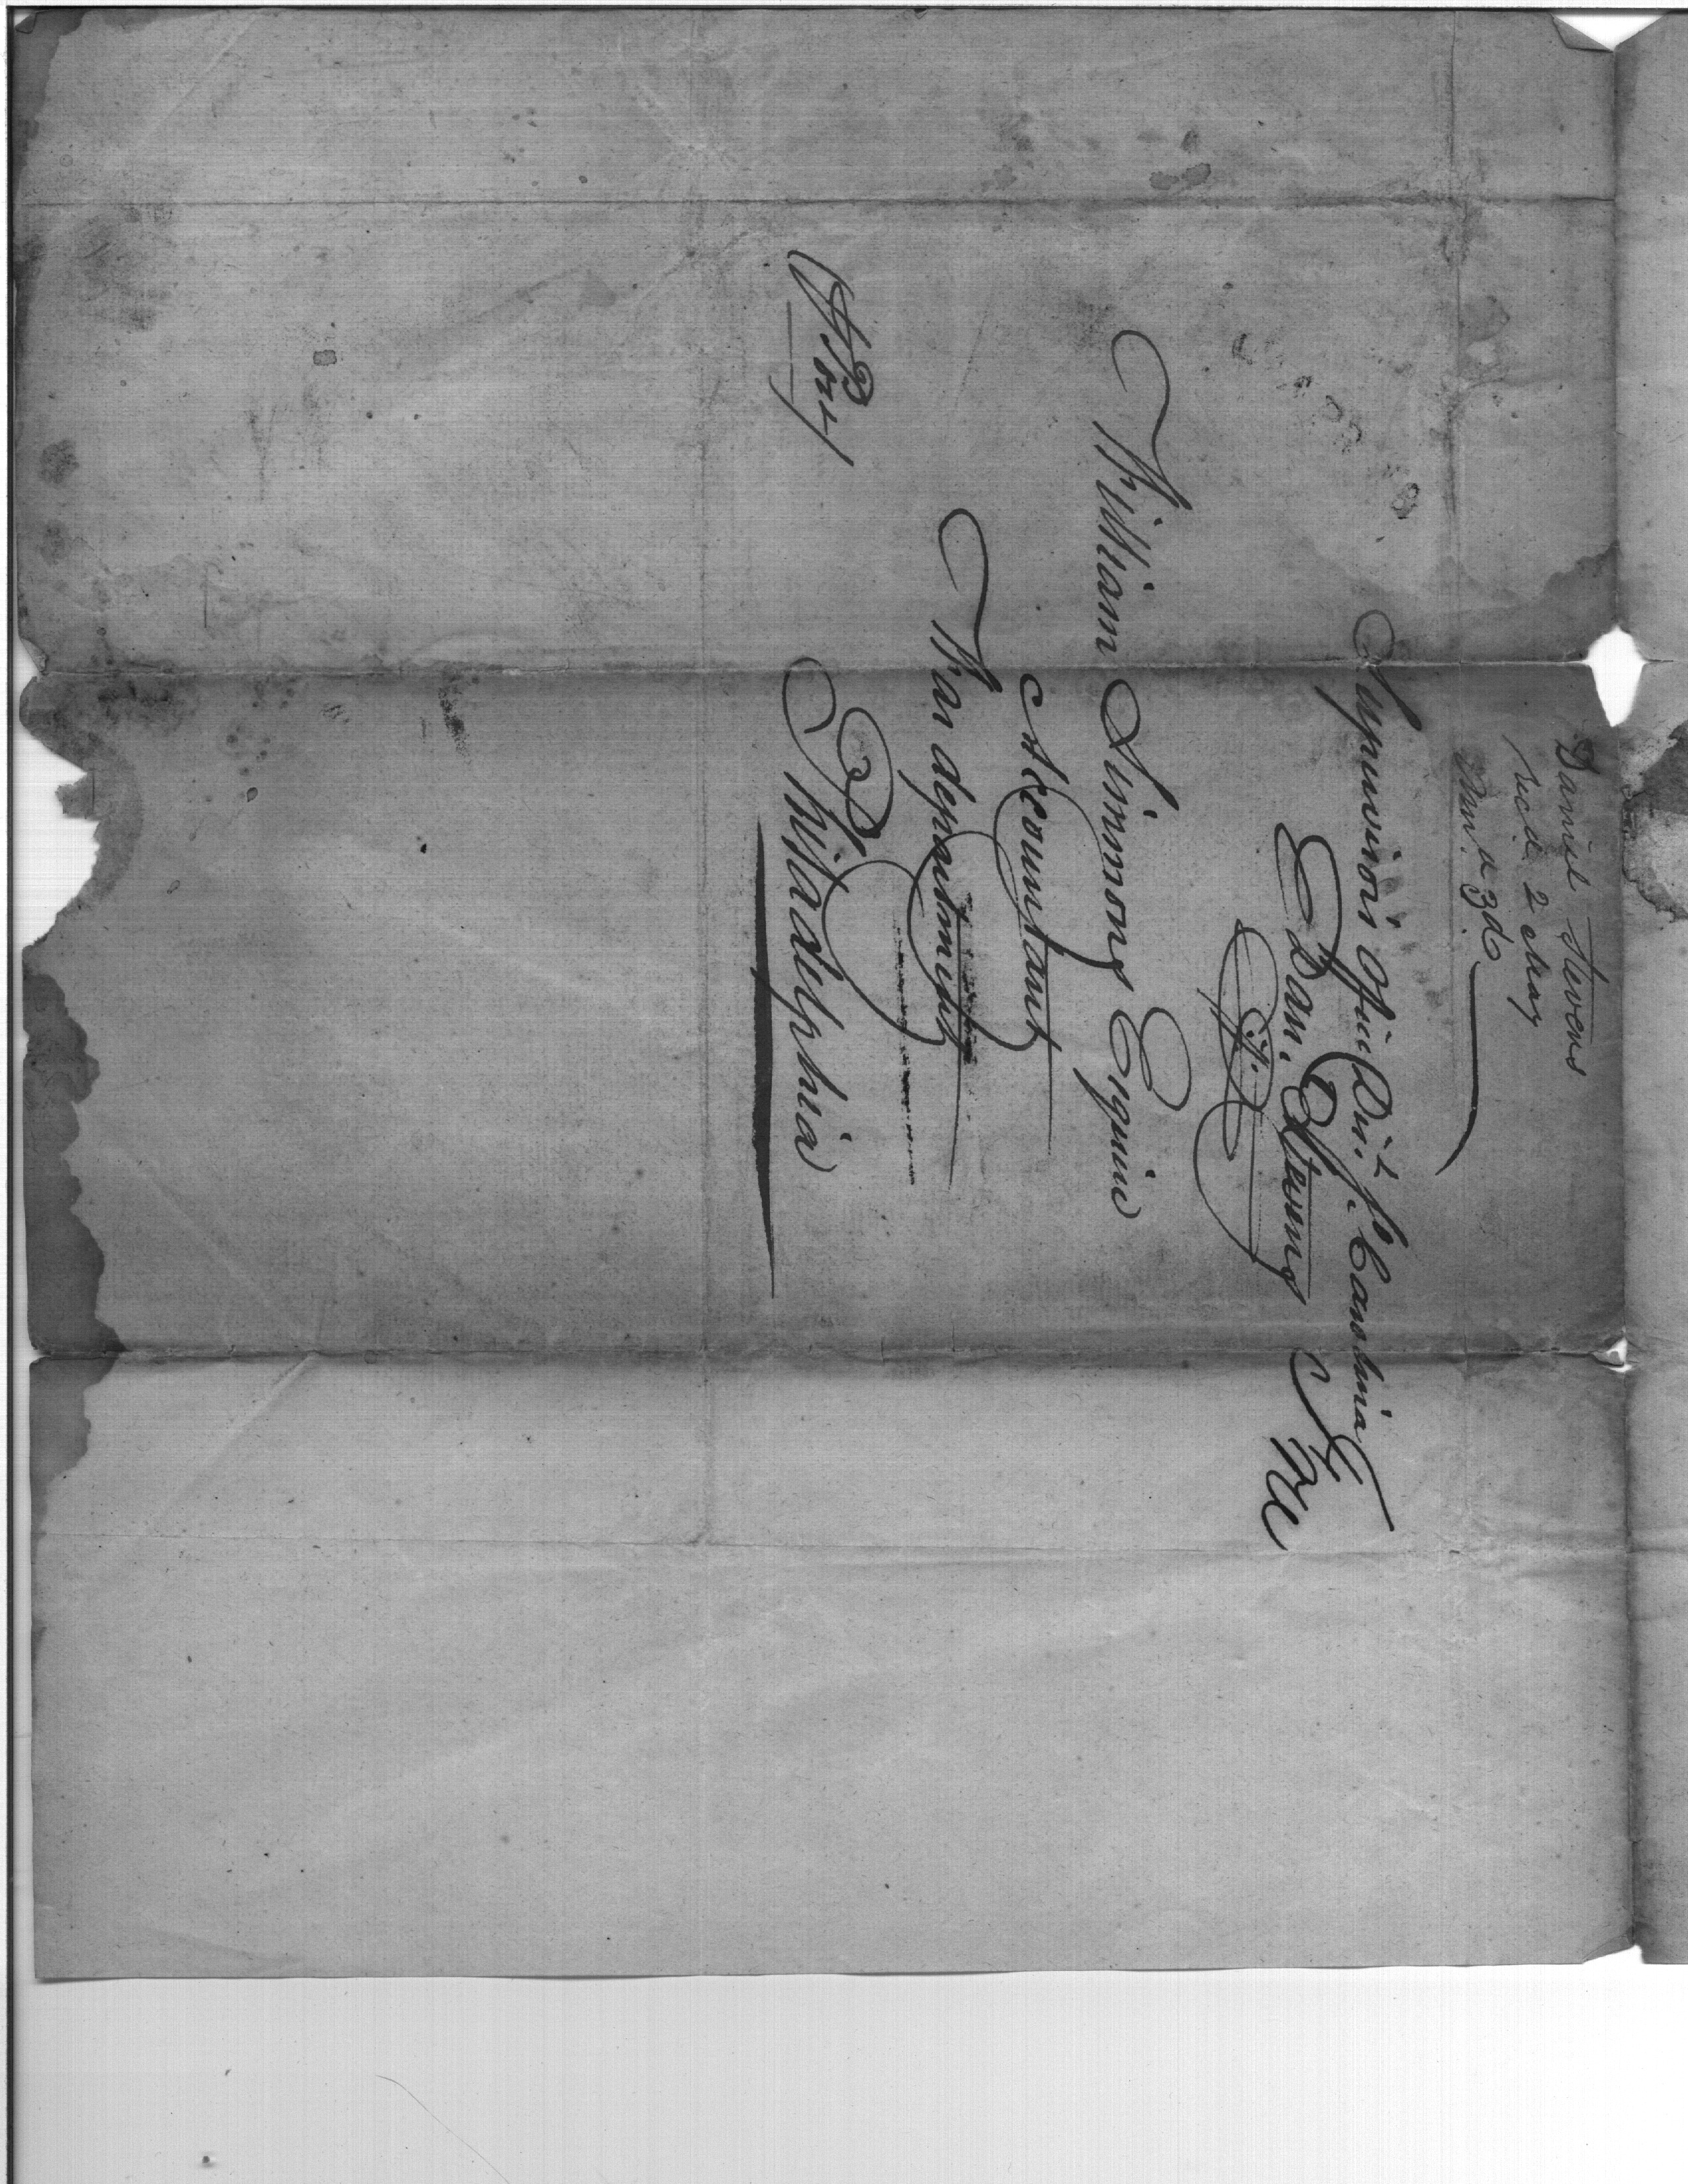 Daniel Stevens
recd. 2 May
Answd 3d
Supervisors Office Dist. S. Carolina
Dan. Stevens
Free
William Simmons Esquire
Accountant
War department
Philadelphia